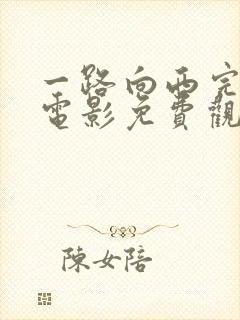 一路向西完
電影免費觀
陳女陪